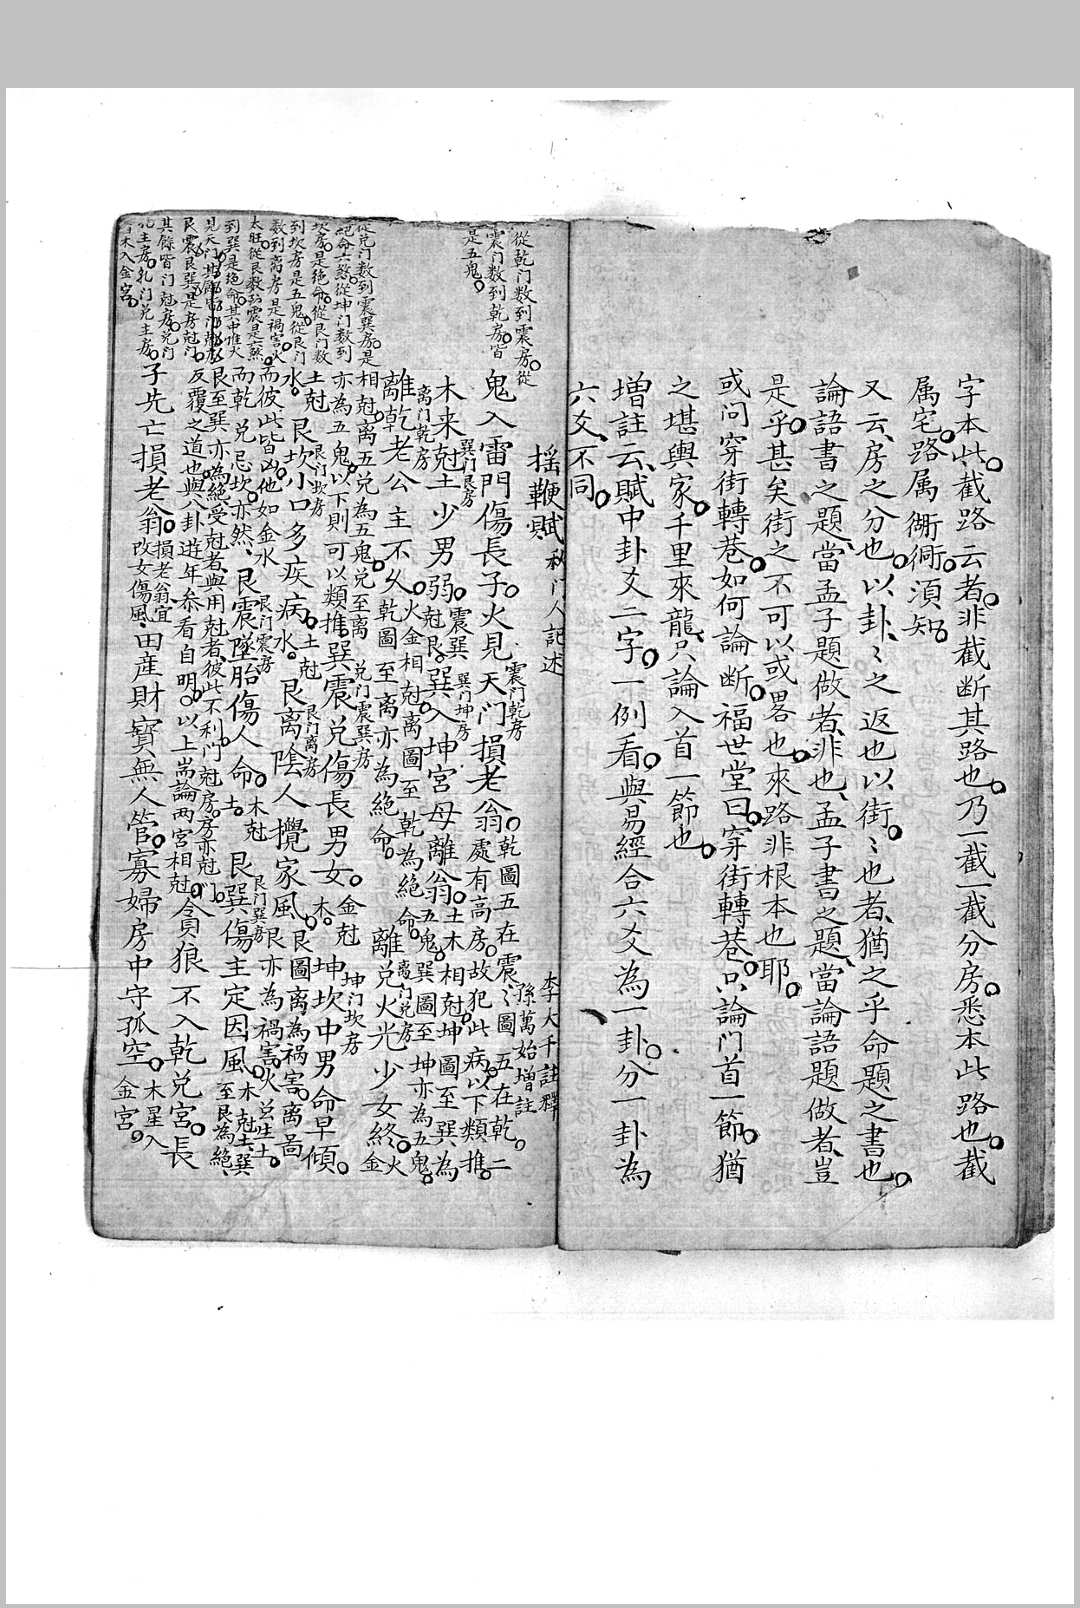 字本此。截路云者。非截断其路也。乃一截一截分房。悉本此路也。截
属宅。路属衙衕。湏知。
又云、房之分也。以卦、〻之返也以街。〻也者、猶之乎命題之書也。
論語書之題、當孟子題做者、非也、孟子書之題、當論語題做者、豈
是乎。甚矣街之不可以或畧也。來路非根本也耶。
或问穿街轉巷。如何論断。福世堂曰。穿街轉巷。只論门首一節。猶
之堪輿家。千里來龍、只論入首一節也。
增註云、賦中卦爻二字。一例看。與易經合六爻為一卦。分一卦為
六爻、不同。
摇鞭赋 秘门人記述 李大千註釋
孫萬始增註
從乾门数到震房。從
震门数到乾房。皆
是五鬼。
鬼入雷門傷長子。火見天門損老翁。乾圖五在震、〻圖五在乾。二
震门乾房
處有高房。故犯此病。以下類推。
巽门艮房
木来尅土少男弱。震巽尅艮。巽入坤宮母離翁。土木相尅坤圖至巽、為
巽门坤房
五鬼。巽圖至坤亦為五鬼。
離门乾房
離乾老公主不久。火金相尅离圖至乾為絕命。乾圖至离亦為絕命。離兑火光少女終。火金
离门兑房
從兑门数到震巽房。是
絕命六煞。從坤门数到
坎房。是絕命。從艮门数
到坎房是五鬼。從艮门
数到离房是禍害。火
太旺。從艮数到震是六煞
到巽是絕命。其中惟火
見天门
艮震艮巽。是房尅门。
其餘皆门尅房。兑门
相尅。离五兑為五鬼。兑至离
亦為五鬼。以下則可以類推。巽震兑傷長男女。金尅木。坤坎中男命早傾。
兑门震巽房
坤门坎房
土尅水。艮坎小口多疾病。土尅水。艮离隂人攪家風。艮圖离為禍害。离啚
艮门坎房
艮门离房
艮亦為禍害。火炎生土。
而彼此皆凶。他如金水
而乾兑忌坎。亦然、艮震墜胎傷人命。木尅土。艮巽傷主定因風。木尅土。巽
艮门震房
艮门巽房
至艮為絕、
艮至巽亦為絕。受尅者、與用尅者。彼此不利。门尅房。房亦尅门。
反覆之道也。與八卦遊年叅看自明。以上耑論两宮相尅。貪狼不入乾兑宮。長
子先亡損老翁。損老翁宜改女傷風、田産財寳無人管。寡婦房中守孤空。木星入
金宮。
木入金宮。